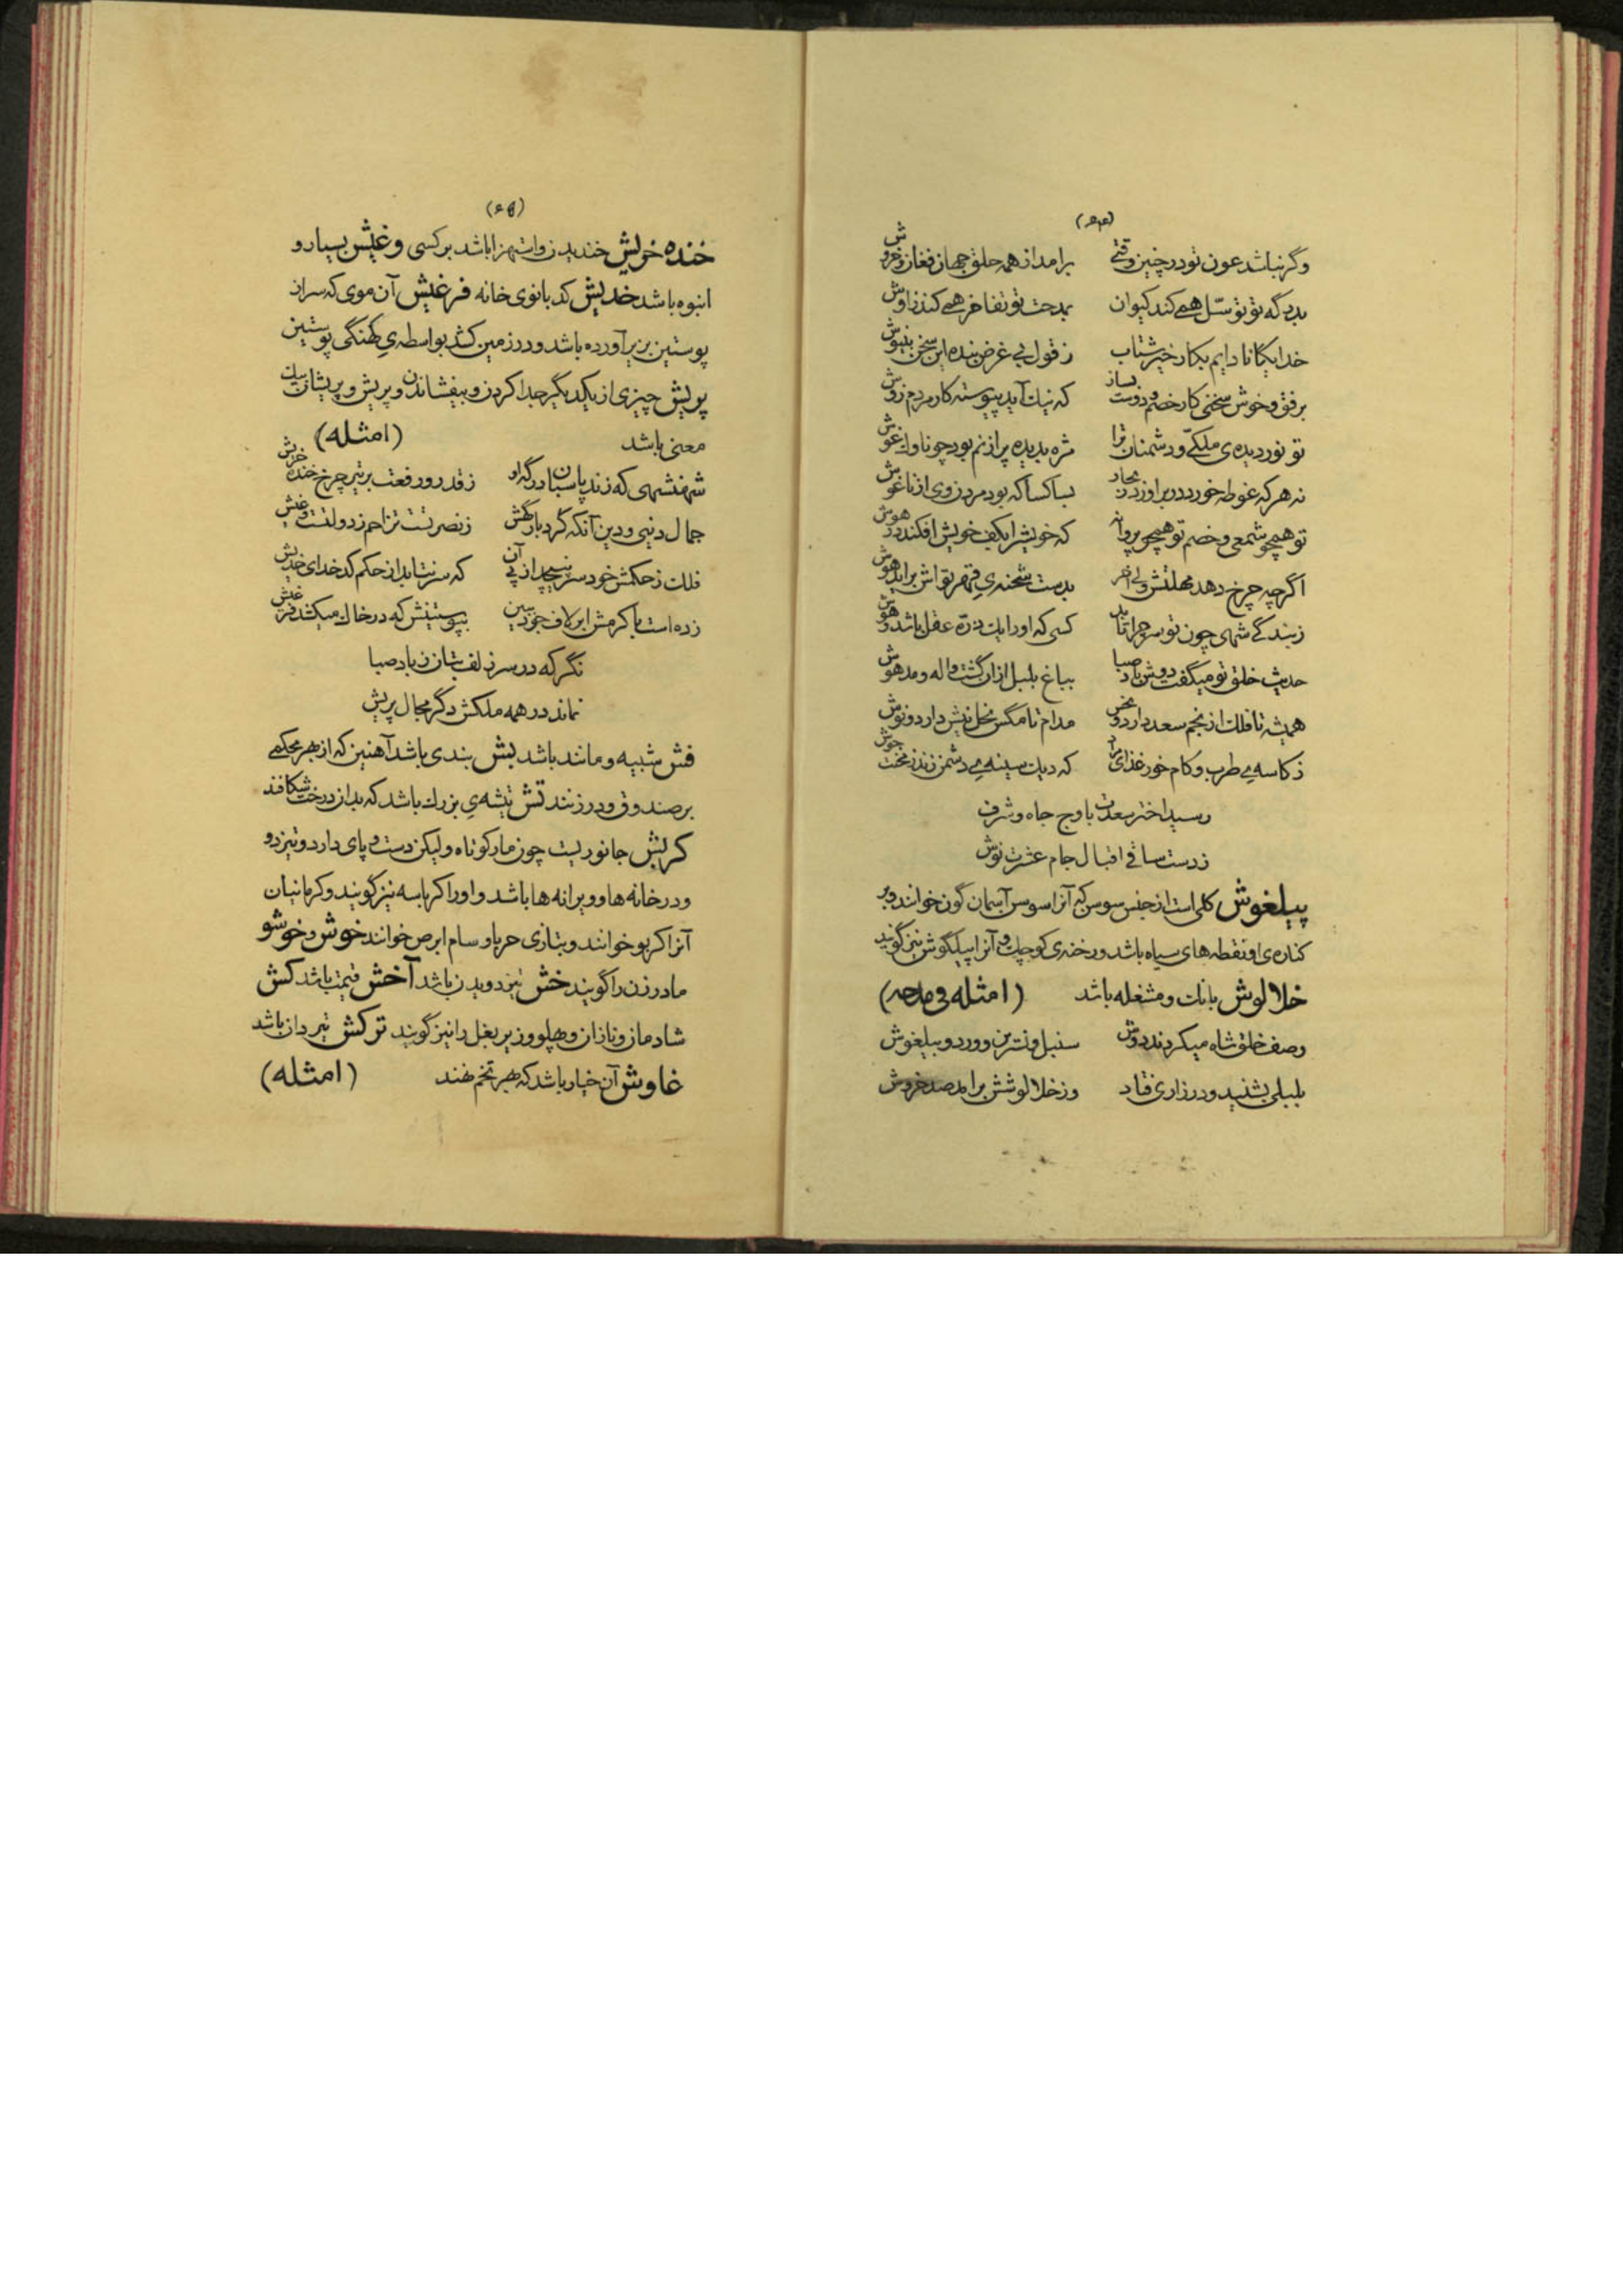 (۶۴)
وگر نباشد عون تو در چنین وقتی برامد از همه خلق جهان فغان و خروش
بدرگه تو توسّل همی کند کیوان بمدحت تو تفاخر همی کند زاوش
خدایگانا دایم بکار خیر شتاب ز قول بی غرض بنده این سخن بنیوش
برفق و خوش سخنی کار خصم و دوست بساز که نیک آید پیوسته کار مردم زوش
تو نور دیده‌ی ملکی و دشمنان ترا مژه بدیده پر از نم بود چو ناو
نه هر که غوطه خورد در براورد ز بحار بسا کسا که بود مرد روی از ناغوش
تو همچو شمعی و خصم تو همچو پروانه که خویش را بکف خویش افکند در هوش
اگرچه چرخ دهد مهلتش ولی آخر بدست شحنه‌ی قهر تواش براید هوش
ز بندگی شهی چون تو سر چرا تابد کسی که او را یک ذرّه عقل باشد و هوش
حدیث خلق تو میگفت دوش باد صبا بباغ بلبل از ان گشت واله و مدهوش
همیشه تا فلک از نجم سعد دارد و نحس مدام تا مگس نحل نیش دارد و نوش
ز کاسه‌ی طرب و کام خور غذای مراد که دیک سینه‌ی دشمن زند ز محنت جوش
رسید اختر سعدت باوج جاه و شرف
ز دست ساقی اقبال جام عشرت نوش
پیلغوش گلی است از جنس سوسن که آنرا سوسن آسمان گون خوانند و بر
کناره‌ی او نقطه‌های سیاه باشد و رخنه‌ی کوچک و آنرا پیلگوش نیز گویند
خلالوش بانک و مشغله باشد (امثله فی مدحه)
وصف خلق شاه میکردند دوش سنبل و نسترن و ورد و پیلغوش
بلبلی بشنید و در زاری فتاد وز خلالوشش برامد صد خروش
(۶۵)
خنده خریش خندیدن و استهزا باشد بر کسی و غیش بسیار و
انبوه باشد خدیش کدبانوی خانه فرغیش آن موی که سر از
پوستین بزیر آورده باشد و در زمین کشد بواسطه‌ی کهنگی پوستین
پریش چیزی از یکدیگر جدا کردن و بیفشاندن و پریش و پریشان بیک
معنی باشد (امثله)
شهنشهی که زند پاسبان درگه او ز قدر و رفعت بر تیر چرخ خنده خریش
جمال دنیی و دین آنکه گرد بارگهش ز نصرتست تزاحم ز دولتست و غیش
فلک ز حکمش خود سر نپیچد از پی آن که سر نتابد از حکم کدخدای خدیش
زده است با کرمش ابر لاف بخود بین بپوستینش که در خاک میکشد فرغیش
نگر که در سر زلف بتان ز باد صبا
نماند در همه ملکش دگر مجال پریش
فش شبیه و مانند باشد بش بندی باشد آهنین که از بهر محکمی
بر صندوق و در زنند تش تیشه‌ی بزرک باشد که بدان درخت شکافند
کربش جانوریست چون مار کوتاه و لیکن دست و پای دارد و تیز دو
و در خانه‌ها و ویرانه‌ها باشد و او را کرباسه نیز گویند و کرمانیان
آنرا کربو خوانند و بتازی حربا و سام ابرص خوانند خوش و خوشو
مادر زن را گویند خش تیز دویدن باشد آخش قیمت باشد کش
شادمان و نازان و پهلو و زیر بغل را نیز گویند ترکش تیردان باشد
غاوش آن خیار باشد که بهر تخم نهند (امثله)